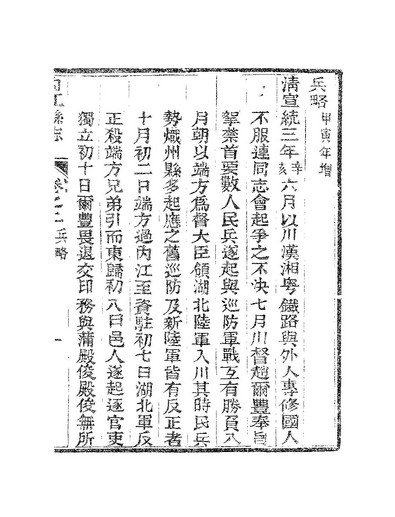 兵略 甲寅年增
清宣統三年辛亥六月以川漢湘粵鐵路與外人專修國人
不服連同志會起爭之不決七月川督趙爾豐奉旨
拏藥首要數人民兵遂起與巡防軍戰互有勝負八
月朝以端方爲督大臣領湖北陸軍入川其時民兵
勢熾州縣多起應之舊巡防及新陸軍皆有反正者
十月初二日端方過內江至資駐初七日湖北軍反
正殺端方兄弟引而東歸初八日邑人遂起逐官吏
獨立初十日爾豐畏退交印務與蒲殿俊殿俊無所
內江縣志 卷之二 兵略 一